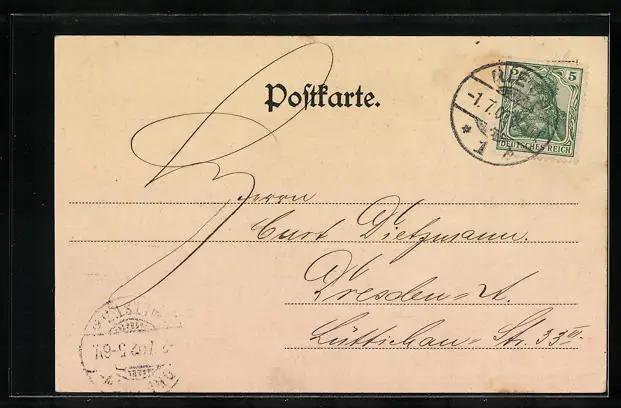 Postkarte.
5
DEUTSCHES REICH
Herrn
Curt Dietzmann.
Dresden=A.
Lüttichau=Str. 33 III.